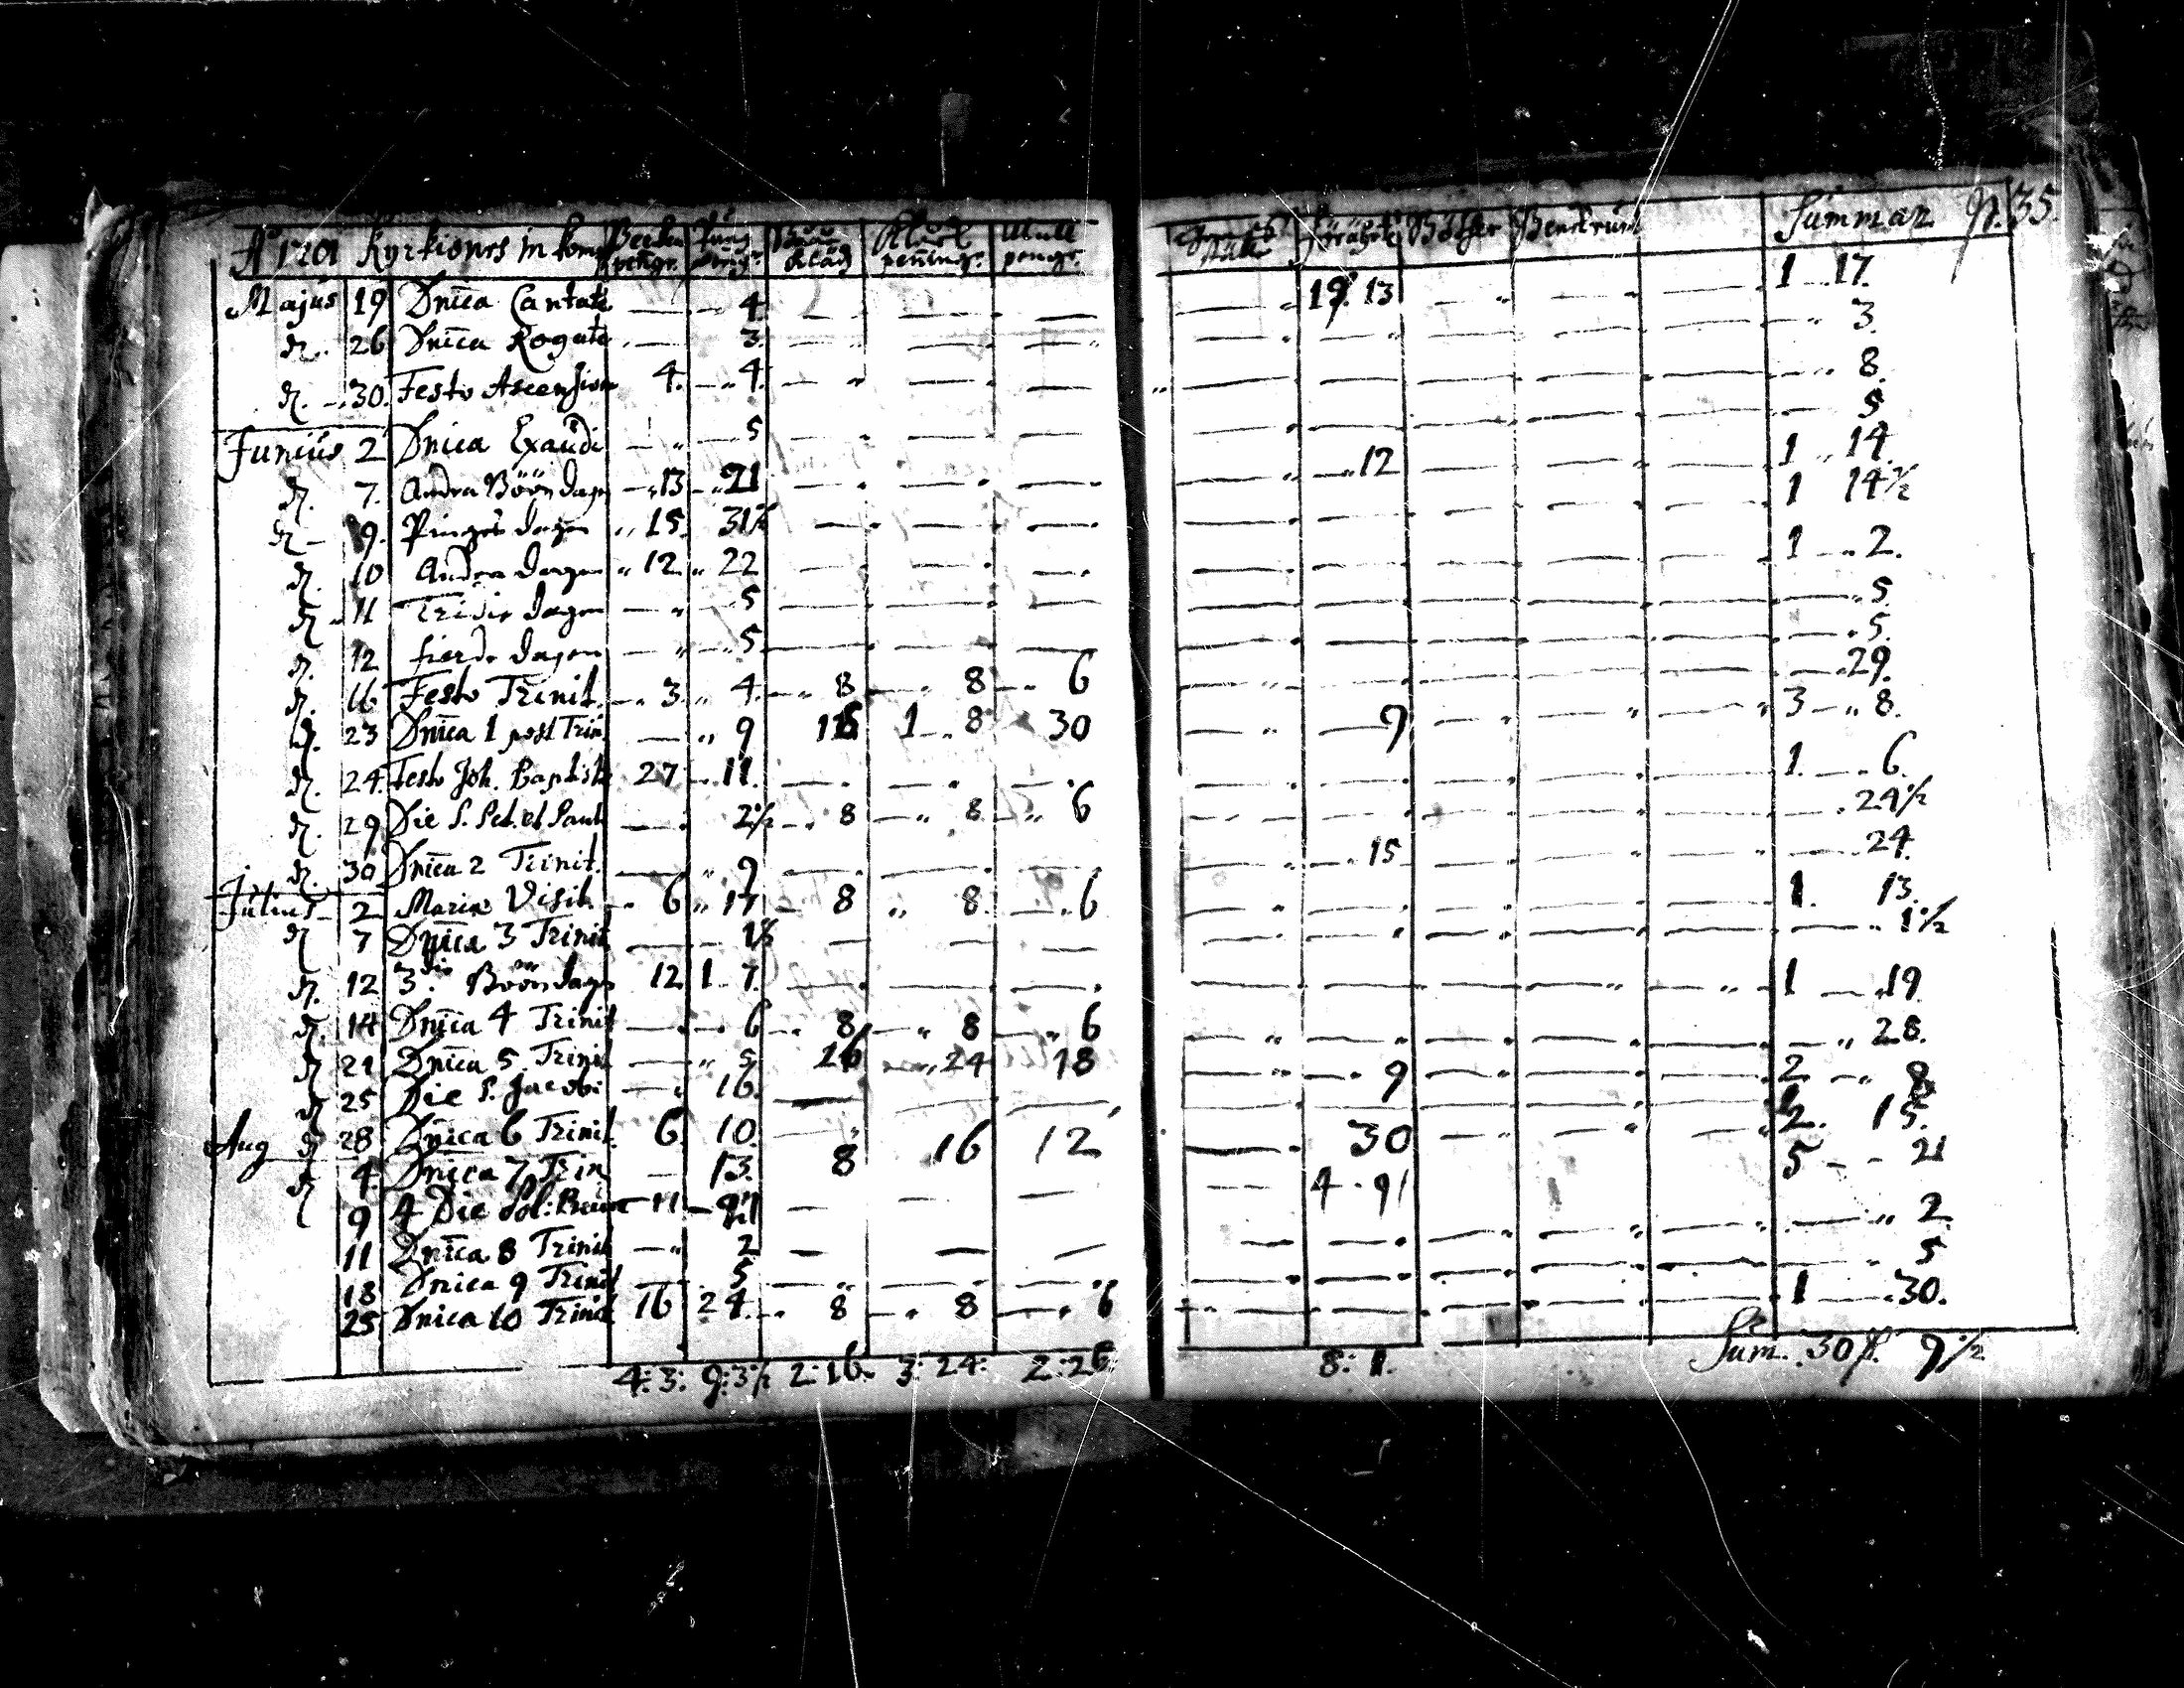 Aº 1701 Kyrkiones in kom pengr. peningr. pengr. Böther Benckrum Summan N. 35.
Majus 19 Dnica Cantate — 4 — — — — 19. 13 — — — 1 17.
d. 26 Dnica Rogate — 3 — — — — — — — — 3.
d. 30. Festo Ascension 4. 4. — — — — — — — — 8.
Junius 2 Dnica Exaudi — 5 — — — — — — — — 5
d. 7. Andra Böön dagn 13 21 — — — — 12 — — — 1 14.
d. 9. Pinges dagen 15. 31½ — — — — — — — — 1 14½
d. 10 Andra dagen 12 22 — — — — — — — — 1 2.
d. 11 Tridie dagen — 5 — — — — — — — — 5.
d. 12 fierde dagen — 5 — — — — — — — — 5.
d. 16 Festo Trinit. 3. 4. 8 8 6 — — — — — 29.
d. 23 Dnica 1 post Trin. — 9 1 8 30 — 9 — — — 3 8.
d. 24. Festo Joh. Baptistæ 27 11. — — — — — — — — 1. 6.
d. 29 Die S. Pet. et Pauli — 2½ 8 8 6 — — — — — 24½
d. 30 Dnica 2 Trinit. — 9 — — — — 15 — — — 24.
Julius 2 Mariæ Visit. 6 17 8 8. 6 — — — — — 1. 13.
d. 7 Dnica 3 Trinit — 1½ — — — — — — — — 1½
d. 12 3die Böön dagn 12 1 7. — — — — — — — — 1 19
d. 14 Dnica 4 Trinit — 6 8 8 6 — — — — — 28.
d. 21 Dnica 5. Trinit — 5 26 24 18 — 9 — — — 2 8
d. 25 Die S. Jacobi — 16. — — — — — — — —
d. 28 Dnica 6 Trinit. 6 10. — 30 — — — 2. 15.
Aug d. 4. Dnica 7 Trin — 13. 8 16 12 — 4 . 91 5 21
9 4 Die Sol: 11 — — —
11 Dnica 8 Trinit — 2 — — — — — — — — 2
18 Dnica 9 Trinit — 5 — — — — — — — — 5
25 Dnica 10 Trinit 16 24 8 8 6 — — — — — 1 30.
4: 3: 9: 3½ 2: 16. 3: 24: 2: 26: 8: 1. Sum. 30 9½